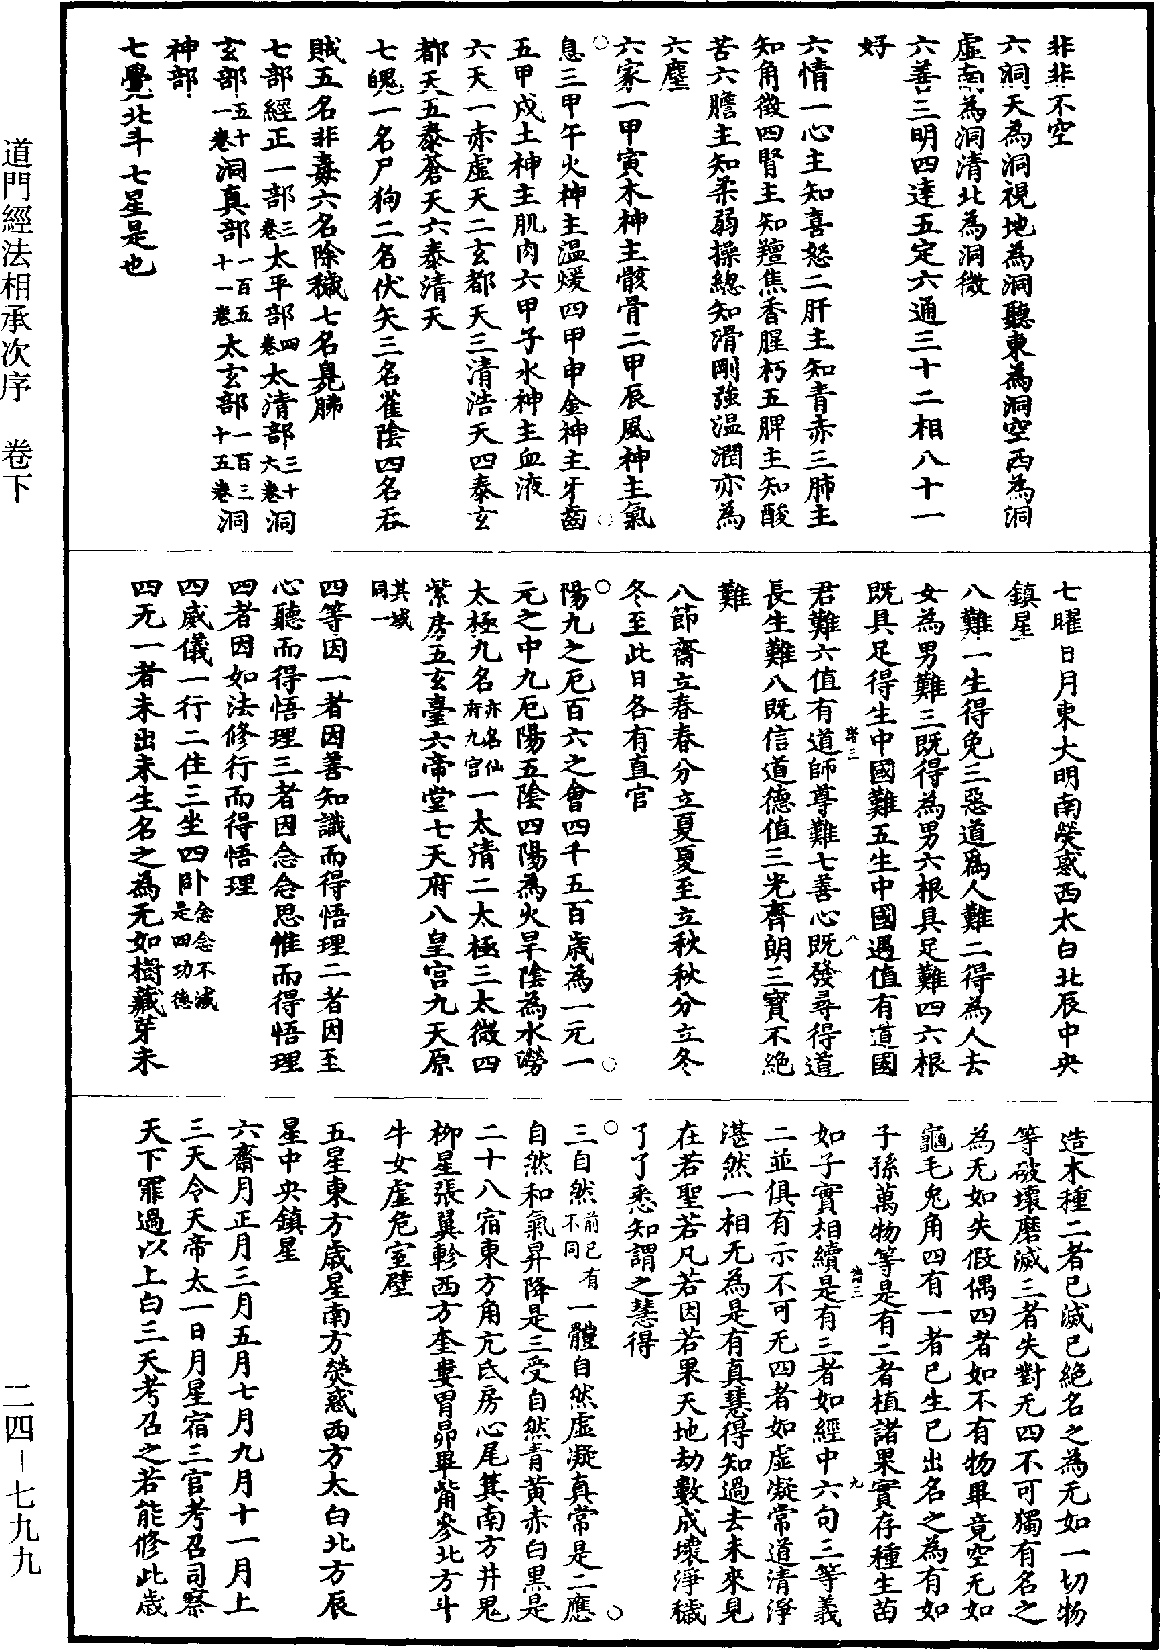 非非不空
六洞天為洞視地為洞聽東為洞空西為洞
虛南為洞清北為洞微
六善三明四達五定六通三十二相八十一
好
六情一心主知喜怒二肝主知青赤三肺主
知角徵四腎主知羶焦香腥朽五脾主知酸
苦六膽主知柔弱操總知滑剛強温潤亦為
六塵
六家一甲寅木神主骸骨二甲辰風神主氣
息三甲午火神主温煖四甲申金神主牙齒
五甲戌土神主肌肉六甲子水神主血液
六天一赤虛天二玄都天三清浩天四泰玄
都天五泰蒼天六泰清天
七魄一名尸狗二名伏矢三名雀陰四名吞
賊五名非毒六名除穢七名臭肺
七部經正一部三卷太平部四卷太清部三十六卷洞
玄部五十一卷洞真部一百五十一卷太玄部一百三十五卷洞
神部
七覺北斗七星是也
七曜日月東大明南熒惑西太白北辰中央
鎮星
八難一生得免三惡道為人難二得為人去
女為男難三既得為男六根具足難四六根
既具足得生中國難五生中國遇值有道國
君難六值有道師尊難七善心既發尋得道
長生難八既信道德值三光齊朗三寶不絕
難
八節齋立春春分立夏夏至立秋秋分立冬
冬至此日各有直官
陽九之厄百六之會四千五百歲為一元一
元之中九厄陽五陰四陽為火旱陰為水澇
太極九名亦名仙府九宮一太清二太極三太微四
紫房五玄臺六帝堂七天府八皇宮九天原
其域同一
四等因一者因善知識而得悟理二者因至
心聽而得悟理三者因念念思惟而得悟理
四者因如法修行而得悟理
四威儀一行二住三坐四卧念念不滅是四功德
四无一者未出未生名之為无如樹藏芽未
造木種二者已滅已絕名之為无如一切物
等破壞磨滅三者失對无四不可獨有名之
為无如失假偶四者如不有物畢竟空无如
龜毛兔角四有一者已生已出名之為有如
子孫萬物等是有二者植諸果實存種生苗
如子實相續是有三者如經中六句三等義
二並俱有示不可无四者如虛凝常道清淨
湛然一相无為是有真慧得知過去未來見
在若聖若凡若因若果天地劫數成壞淨穢
了了悉知謂之慧得
三自然前已有不同一體自然虛凝真常是二應
自然和氣昇降是三受自然青黃赤白黑是
二十八宿東方角亢氐房心尾箕南方井鬼
柳星張翼軫西方奎婁胃昴畢觜參北方斗
牛女虛危室壁
五星東方歲星南方熒惑西方太白北方辰
星中央鎮星
六齋月正月三月五月七月九月十一月上
三天令天帝太一日月星宿三官考召司察
天下罪過以上白三天考召之若能修此歲
道門經法相承次序　卷下
二四－七九九